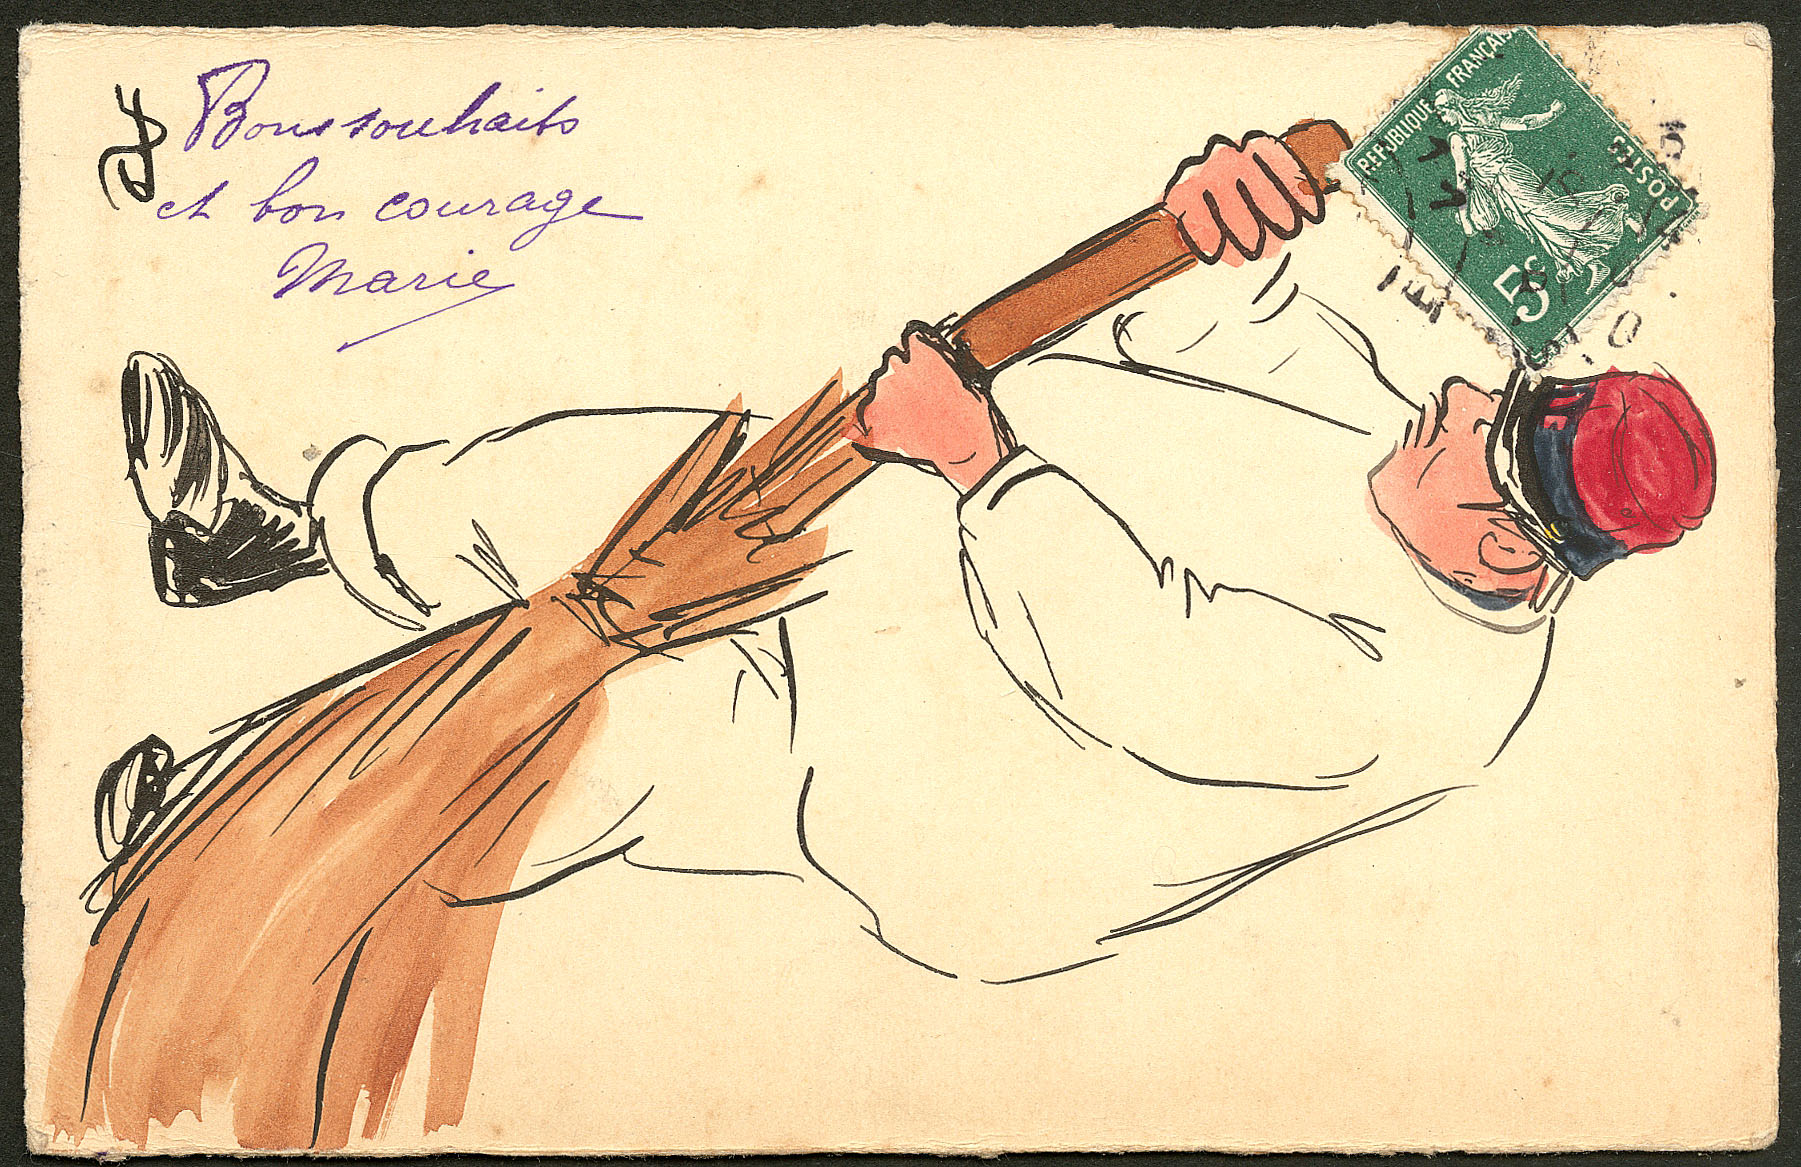 Bons souhaits
et bon courage
Marie
REPUBLIQUE FRANÇAISE
POSTES
5c